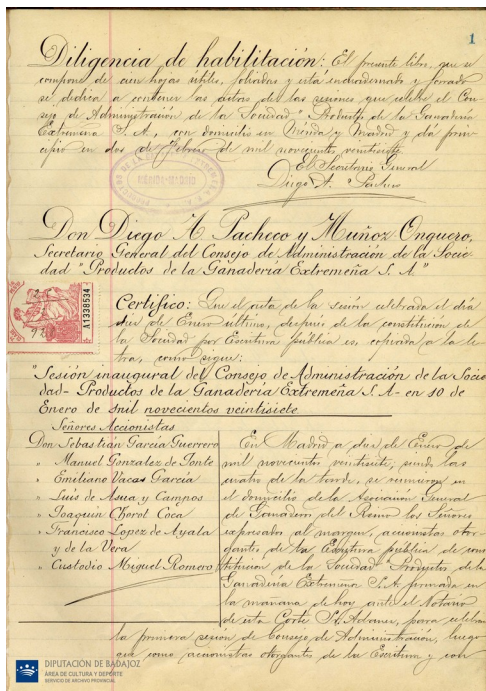 1
Diligencia de habilitación: El presente libro, que se
compone de cien hojas útiles, foliadas y está encuadernado y forrado
se dedica a contener las actas de las sesiones que celebre el Con-
sejo de Administración de la Sociedad "Productos de la Ganadería
Extremeña S. A., con domicilio en Mérida y Madrid y dá prin-
cipio en dos de Febrero de mil novecientos veintisiete
El Secretario General
Diego A. Pacheco
Don Diego A. Pacheco y Muñoz Onguero,
Secretario General del Consejo de Administración de la Socie-
dad "Productos de la Ganadería Extremeña S. A"
A1338534
Certifico: Que el acta de la sesión celebrada el día
diez de Enero último, después de la constitución de
la Sociedad por Escritura pública es, copiada a la le-
tra, como sigue:
"Sesión inaugural del Consejo de Administración de la Socie
dad- Productos de la Ganadería Extremeña S. A- en 10 de
Enero de mil novecientos veintisiete
Señores Accionistas
Don Sebastián García Guerrero
" Manuel Gonzalez de Jonte
" Emiliano Vacas García
" Luis de Asua y Campos
" Joaquin Chorot Coca
" Francisco Lopez de Ayala
y de la Vera
" Custodio Miguel Romero
En Madrid a diez de Enero de
mil novecientos veintisiete, siendo las
cuatro de la tarde, se reunieron en
el domicilio de la Asociación General
de Ganaderos del Reino los Señores
expresados al margen, accionistas otor-
gantes de la Escritura pública de cons
titucion de la Sociedad "Productos de la
Ganadería Extremeña S. A. firmada en
la mañana de hoy ante el Notario
de esta Corte Sr. para celebrar
la primera sesión de Consejo de Administración, luego
que como accionistas otorgantes de la Escritura y con
DIPUTACIÓN DE BADAJOZ
ÁREA DE CULTURA Y DEPORTE
SERVICIO DE ARCHIVO PROVINCIAL